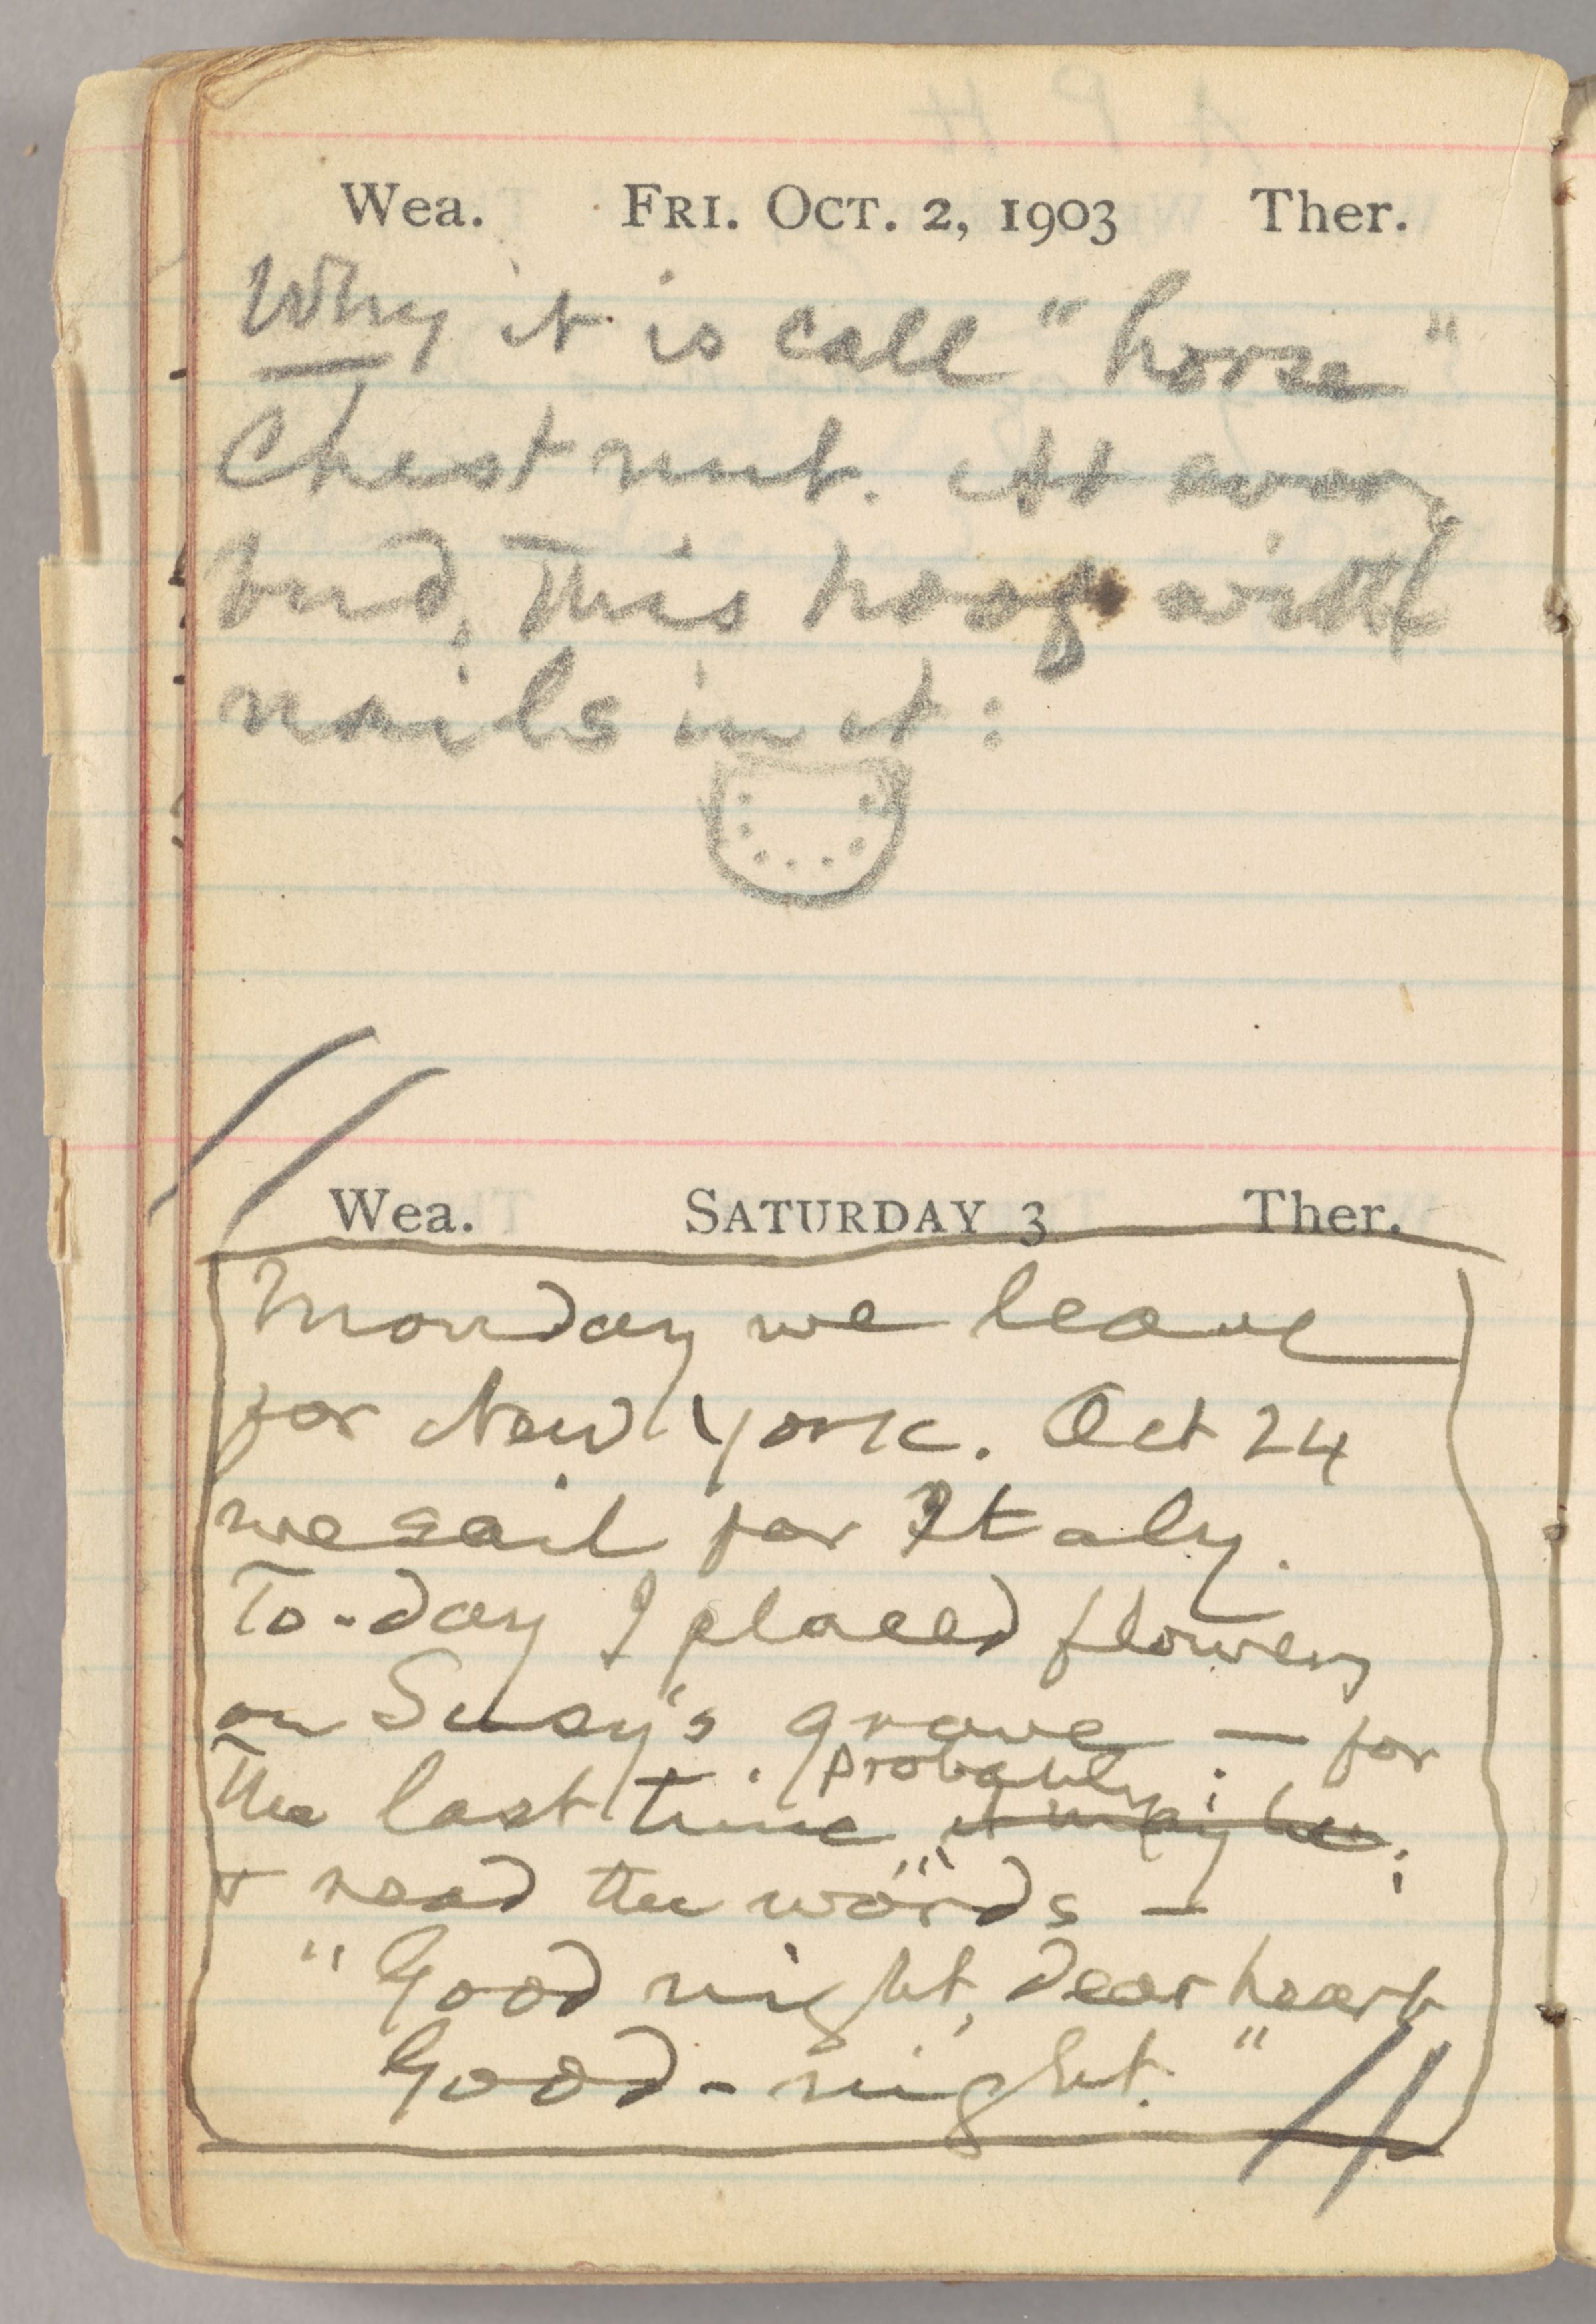 Wea. FRI. OCT. 2, 1903 Ther.
Why it is call "horse"
Chestnut. At every
bud, this hoof with
nails in it:
Wea. SATURDAY 3 Ther.
Monday we leave
for New York. Oct 24
we sail for Italy.
To-day I placed flowers
on Susy's grave — for
probably;
the last time it may be;
& read the words —
"Good night, dear heart
Good-night."